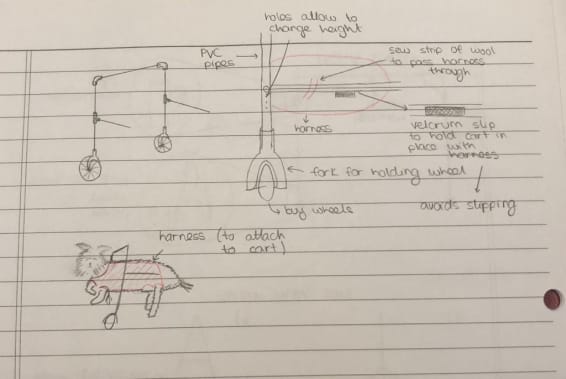 holes allow to
change height
PVC
pipes
sew strip of wool
to pass harness
through
harness
velcrum slip
to hold cart in
place with
harness
fork for holding wheel
buy wheels
avoids slipping
harness (to attach
to cart)